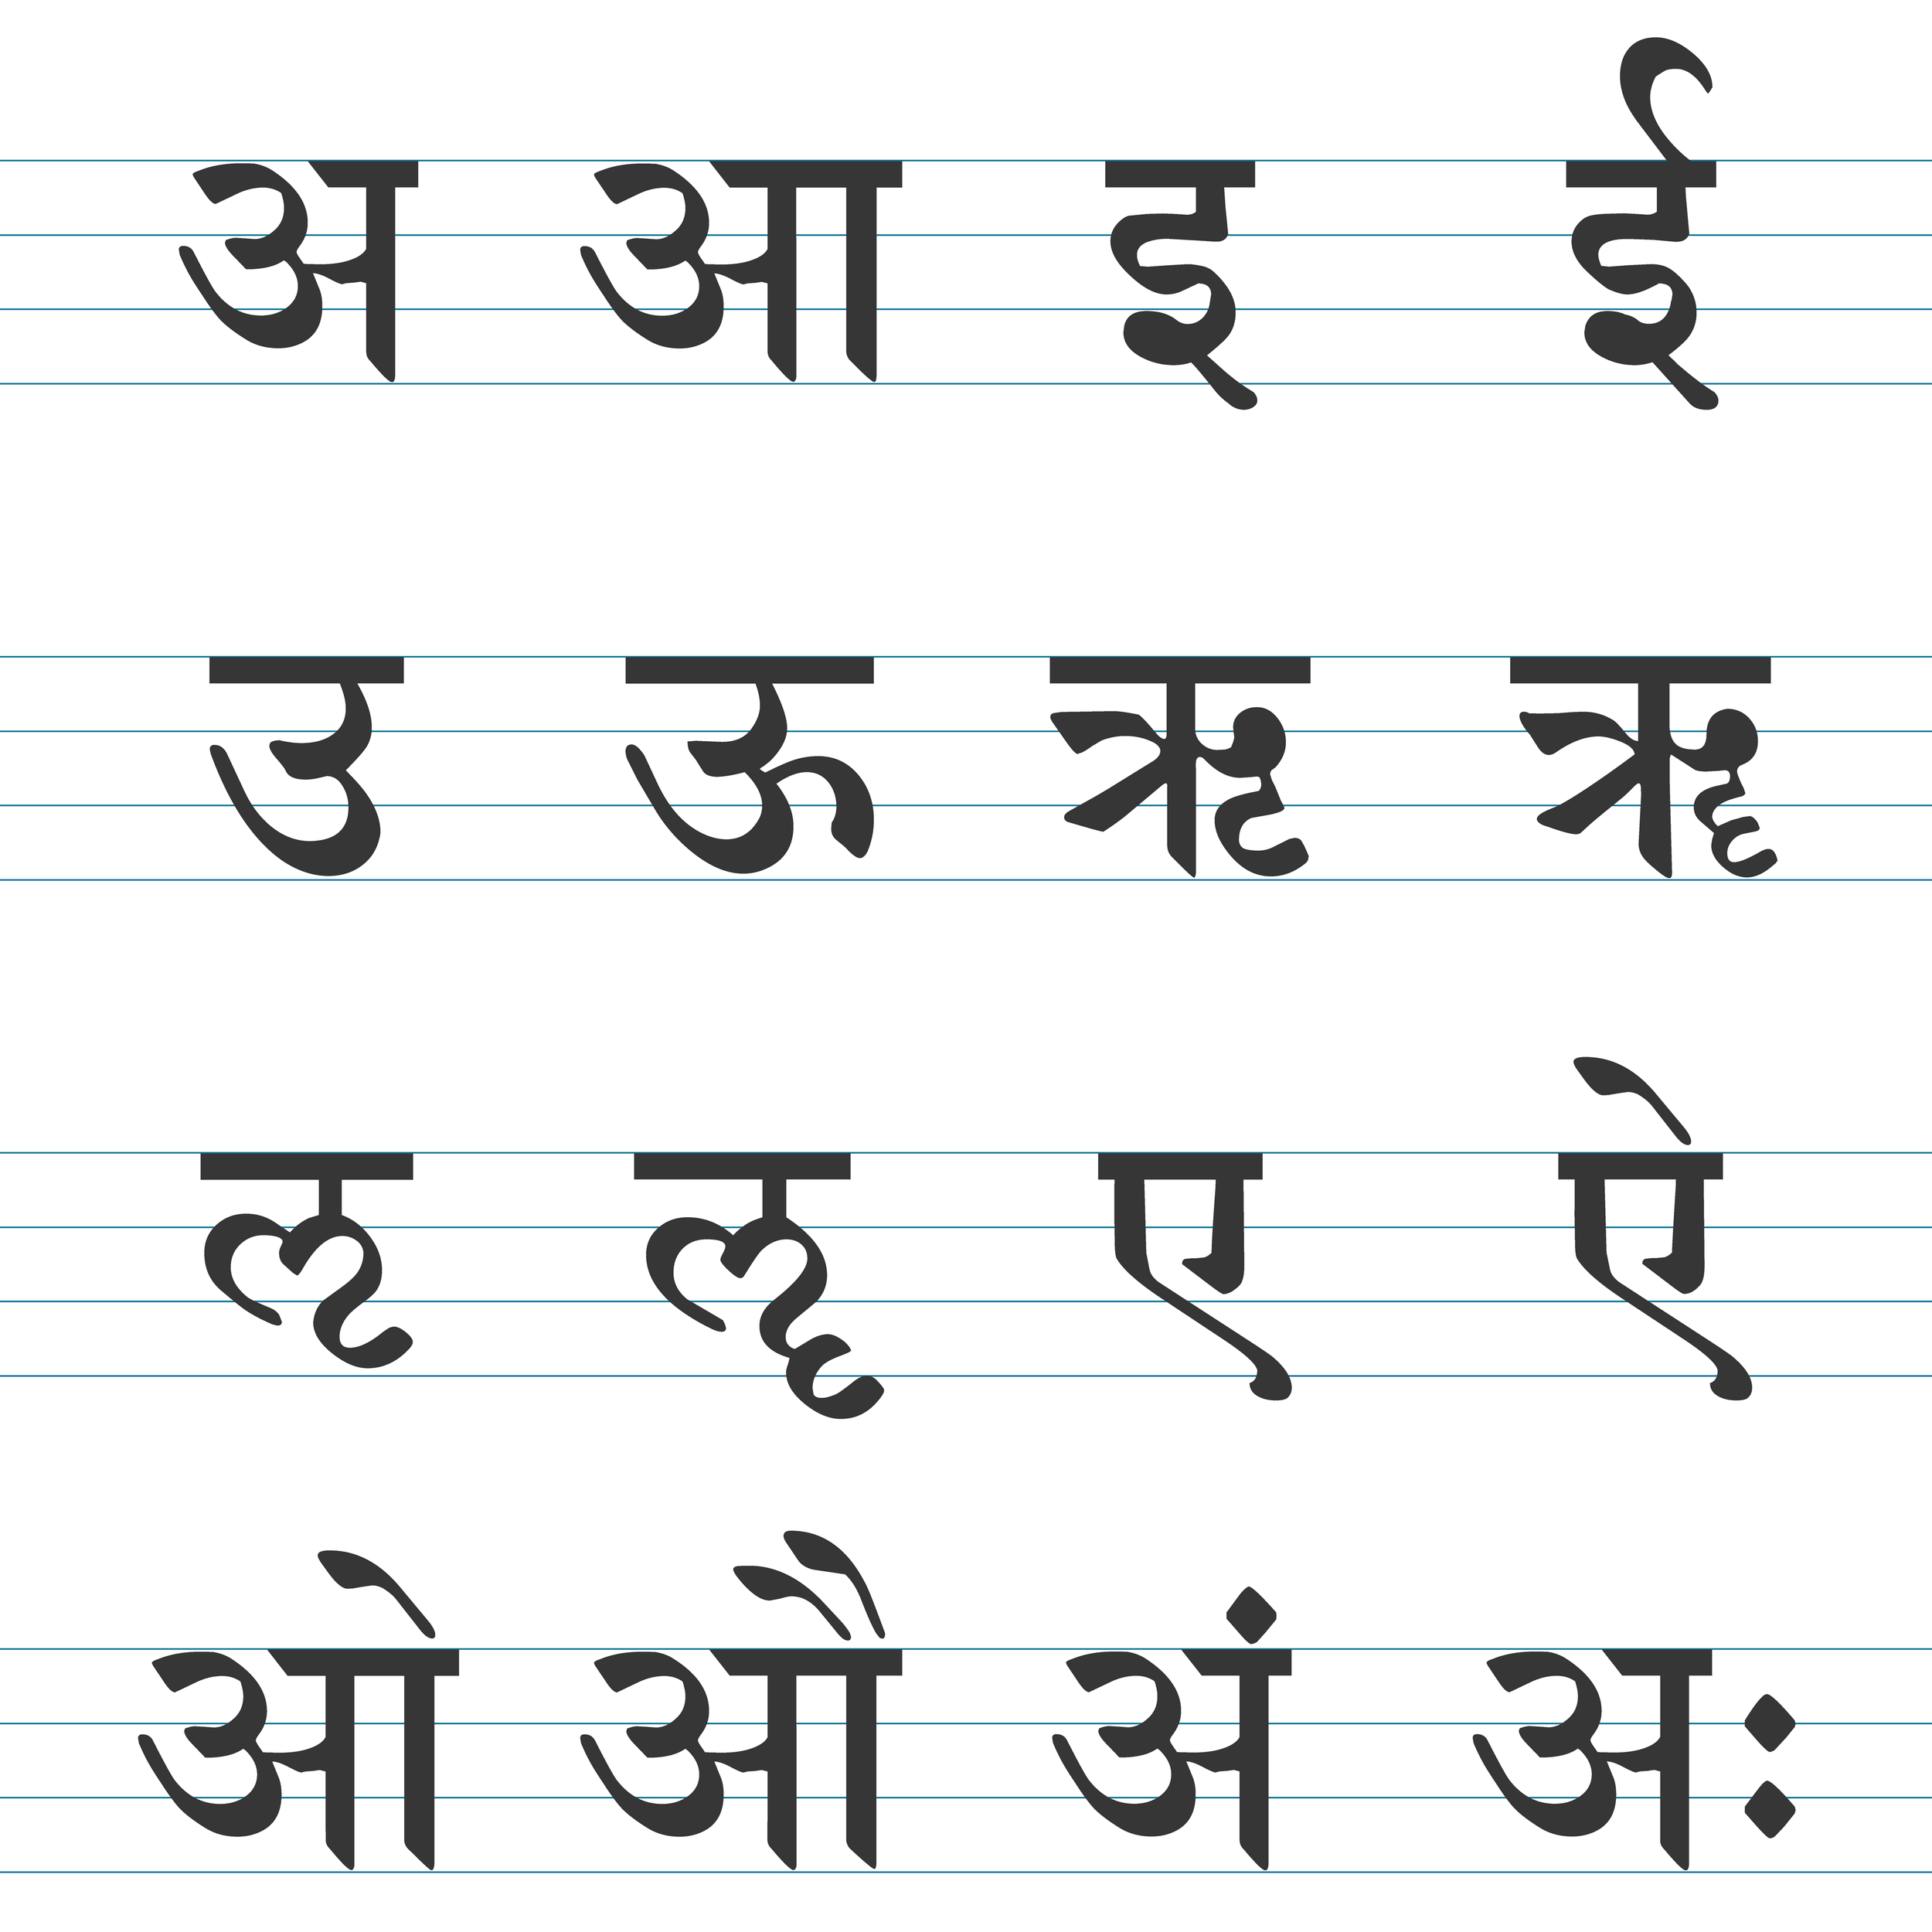 अ आ इ ई
उ ऊ ऋ ॠ
ऌ ॡ ए ऐ
ओ औ अं अः